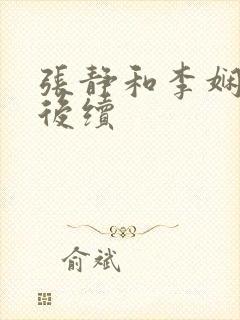 張靜和李娴
後續
俞斌